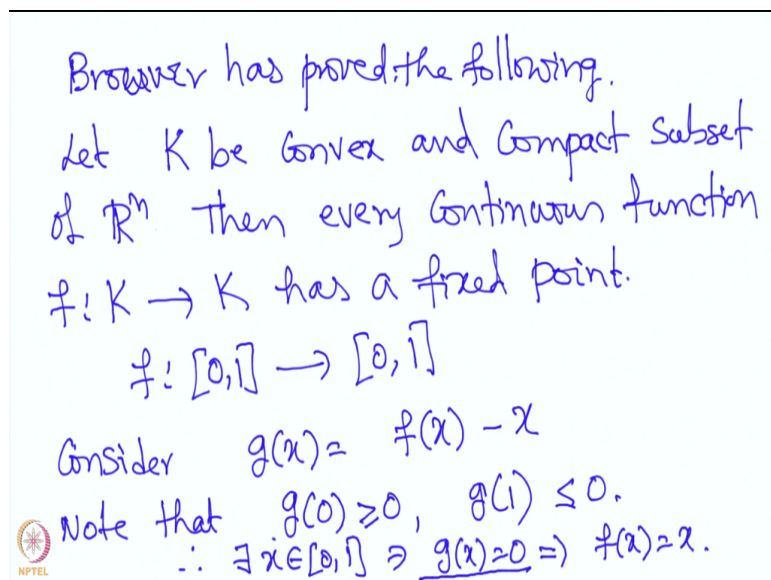 Brouwer has proved the following.
Let K be Convex and Compact Subset
of ℝⁿ Then every Continuous function
f: K → K has a fixed point.
f: [0,1] → [0,1]
Consider g(x) = f(x) - x
Note that g(0) ≥ 0, g(1) ≤ 0.
∴ ∃ x ∈ [0,1] ∋ g(x)=0 ⇒ f(x)=x.
NPTEL